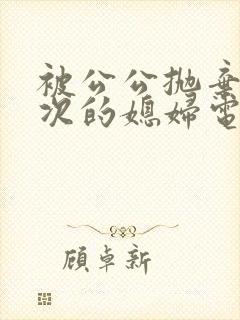 被公公抛棄
次的媳婦電
顧卓新